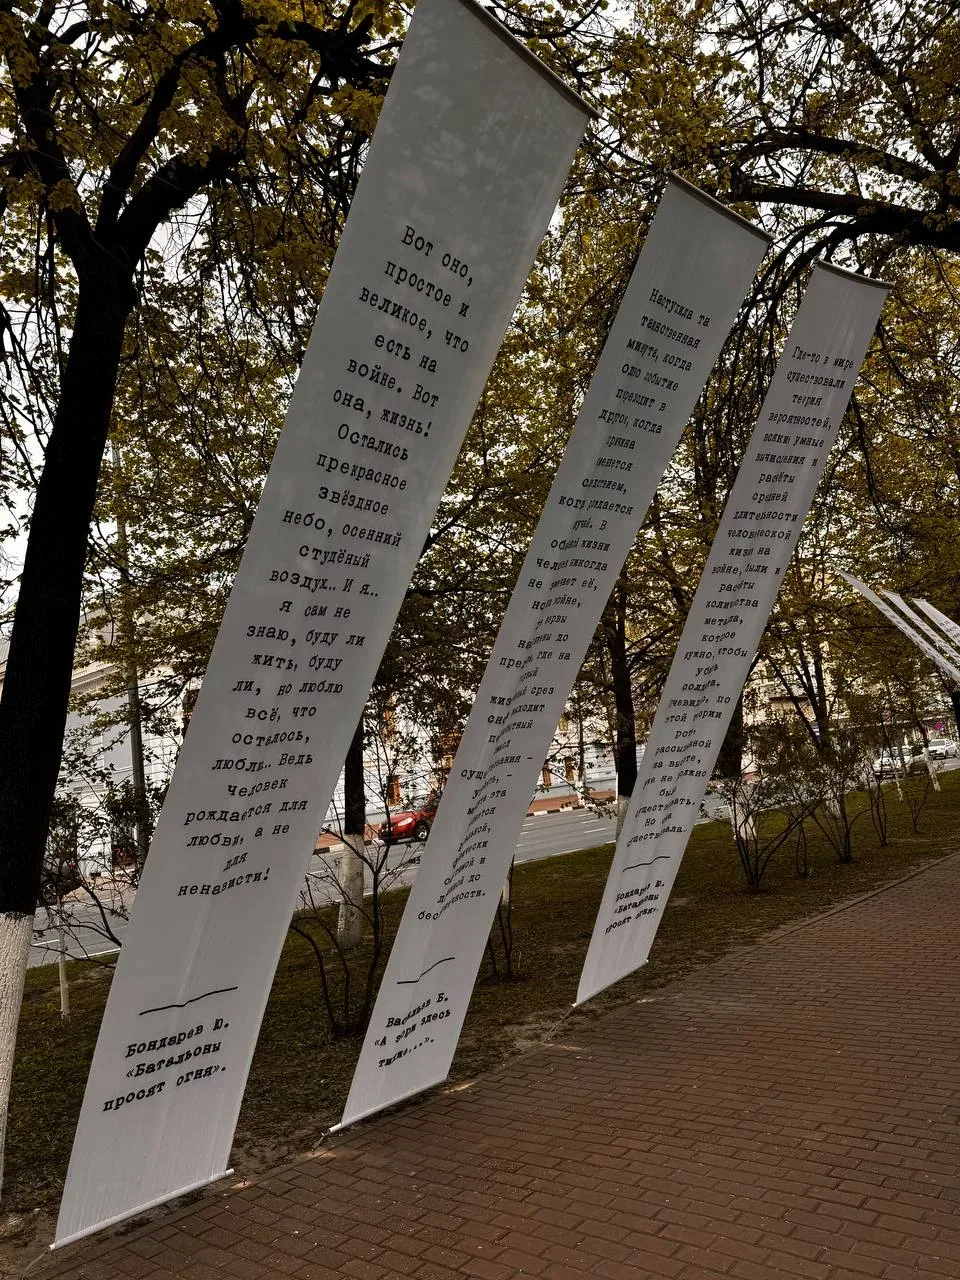 Вот оно,
простое и
великое, что
есть на
войне. Вот
она, жизнь!
Остались
прекрасное
звёздное
небо, осенний
студёный
воздух.. И я..
Я сам не
знаю, буду ли
жить, буду
ли, но люблю
всё, что
осталось,
люблю.. Ведь
человек
рождается для
любви, а не
для
ненависти!
Бондарев Ю.
«Батальоны
просят огня».
Наступила та
таинственная
минута, когда
одно событие
переходит в
другое, когда
причина
сменяется
следствием,
когда рождается
случай. В
обычной жизни
человек никогда
не замечает её,
но на войне,
где нервы
напряжены до
предела, где на
первый
жизненный срез
снова выходит
первобытный
смысл
существования -
уцелеть, -
минута эта
делается
реальной,
физически
ощутимой и
длинной до
бесконечности.
Васильев Б.
«А зори здесь
тихие...».
Где-то в мире
существовали
теория
вероятностей,
всякие умные
вычисления и
расчёты
средней
длительности
человеческой
жизни на
войне, были и
расчёты
количества
металла,
которое
нужно, чтобы
убить
солдата.
Очевидно, по
этой теории
рота,
рассыпанной
на высоте,
уже не должно
было
существовать.
Но она
существовала.
Бондарев Ю.
«Батальоны
просят огня».